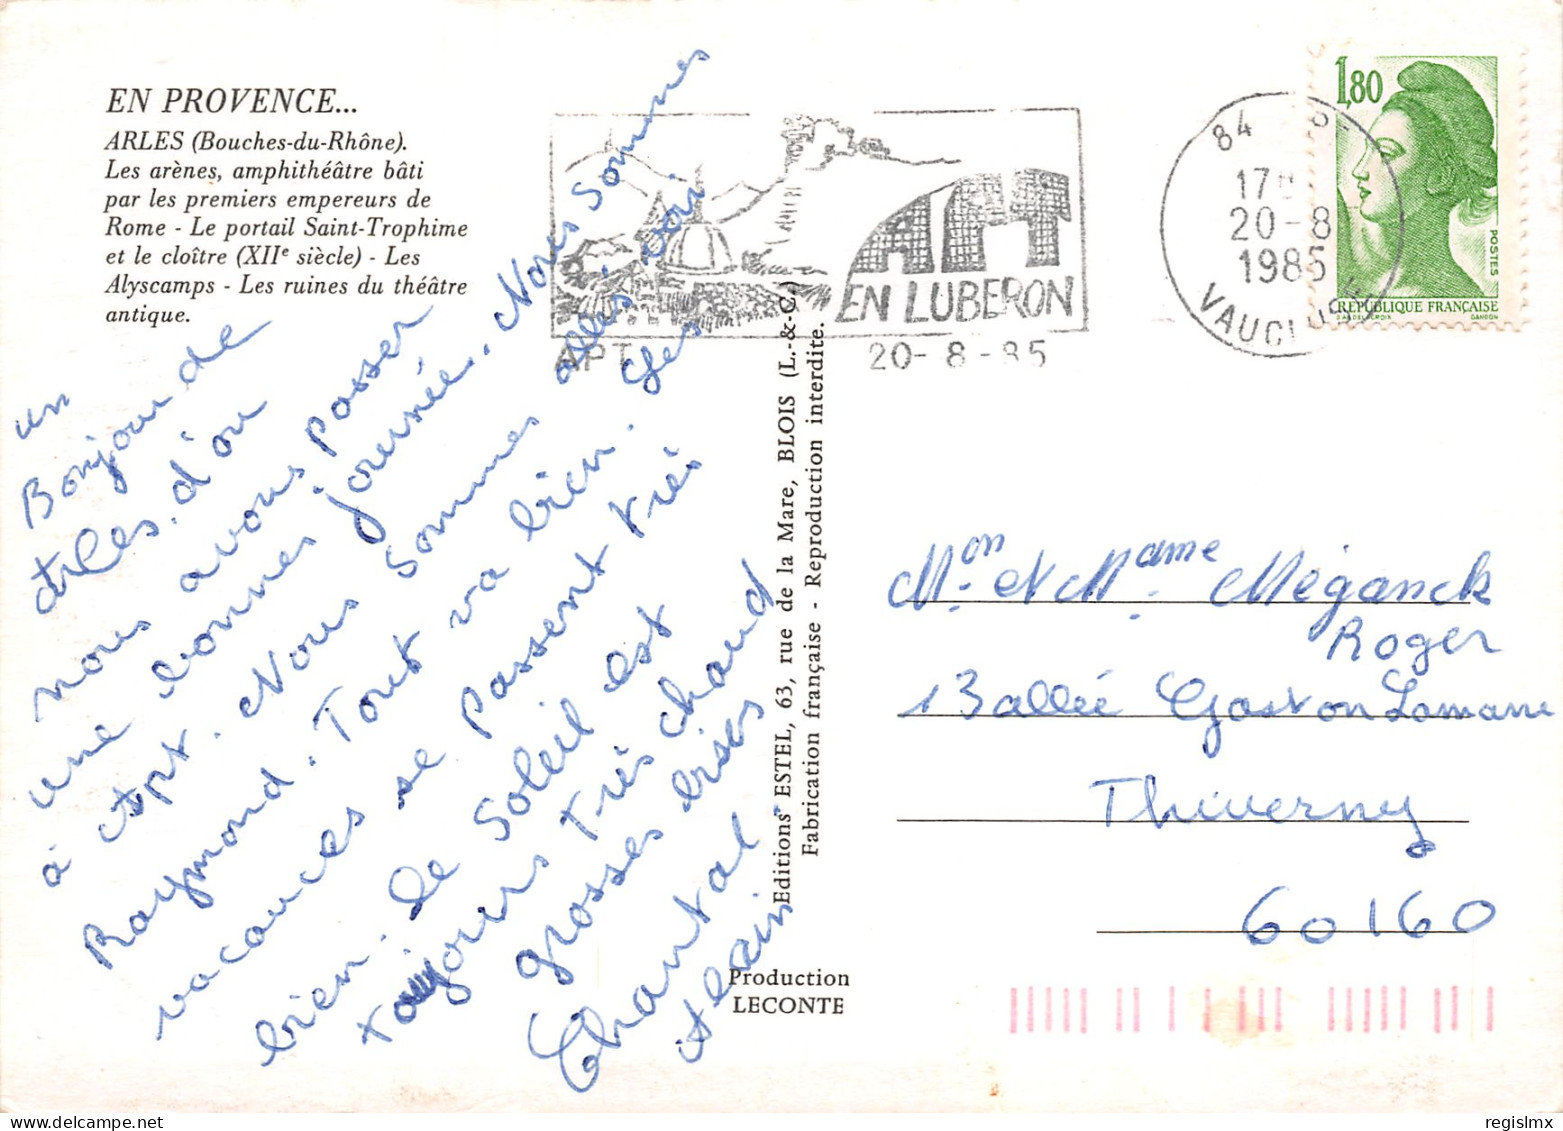 EN PROVENCE...
ARLES (Bouches-du-Rhône).
Les arènes, amphithéâtre bâti
par les premiers empereurs de
Rome - Le portail Saint-Trophime
et le cloître (XIIe siècle) - Les
Alyscamps - Les ruines du théâtre
antique.
un
Bonjour de
Arles. d'ou
nous avons passer
une bonnes journée. Nous sommes
à Apt. Nous sommes allés voir
Raymond. Tout va bien. Les
vacances se passent très
bien. Le Soleil est
toujours très chaud
grosses bises
Chantal
Alain
APT
EN LUBERON
APT
20-8-85
84
17
20-8
1985
VAUCLUSE
1,80
POSTES
RÉPUBLIQUE FRANÇAISE
D'AP. DELACROIX
GANDON
Editions ESTEL, 63, rue de la Mare, BLOIS (L.-&-C.)
Fabrication française - Reproduction interdite.
Production
LECONTE
Mon. et Mame. Méganck
Roger
13 allée Gaston Lamarre
Thiverny
60160
regislmx